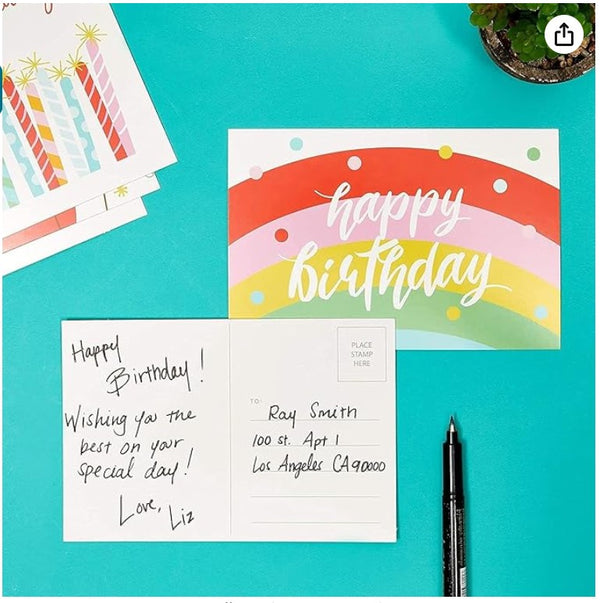 happy
birthday
Happy
Birthday!
Wishing you the
best on your
special day!
Love,
Liz
PLACE
STAMP
HERE
TO:
Ray Smith
100 st. Apt 1
Los Angeles CA 90000